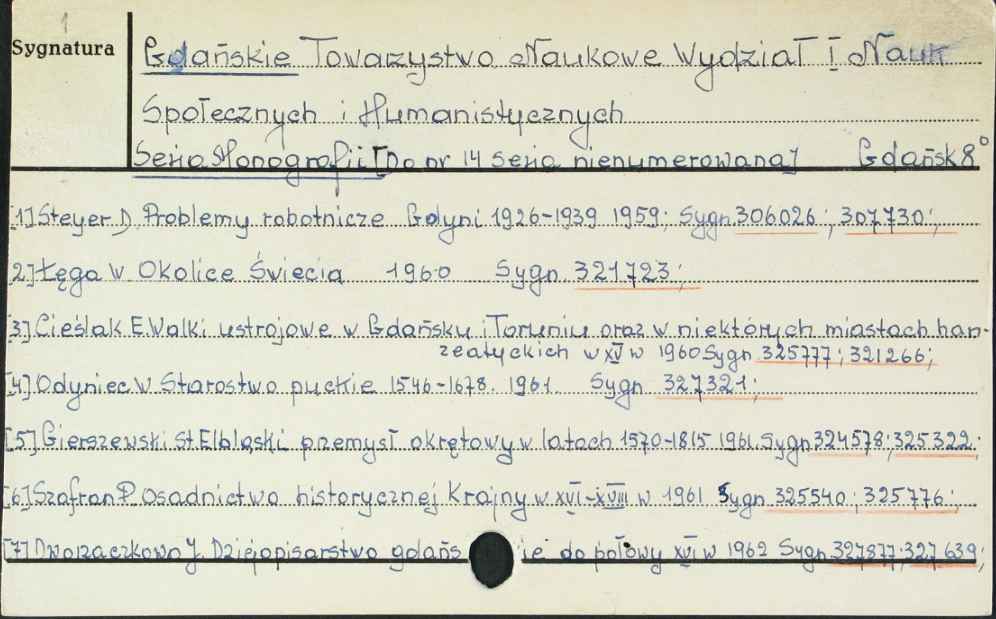 1
Sygnatura
Gdańskie Towarzystwo Naukowe Wydział I Nauk
Społecznych i Humanistycznych
Seria Monografii [Do nr 14 seria nienumerowana] Gdańsk 8°
[1] Steyer D. Problemy robotnicze Gdyni 1926-1939 1959; Sygn. 306026; 307730;
[2] Łęga W. Okolice Świecia 1960 Sygn. 321723;
[3] Cieślak E. Walki ustrojowe w Gdańsku i Toruniu oraz w niektórych miastach han-
zeatyckich w XV w 1960 Sygn 325777; 321266;
[4] Odyniec W Starostwo puckie 1546-1678. 1961. Sygn 327321;
[5] Gierszewski St. Elbląski przemysł okrętowy w latach 1570-1815 1961. Sygn 324578; 325322;
[6] Szafran P. Osadnictwo historycznej Krajny w XVI-XVIII w 1961 Sygn 325540; 325776;
[7] Dworzaczkowa J. Dziejopisarstwo gdańs ie do połowy XVI w 1962 Sygn 327877; 327639;